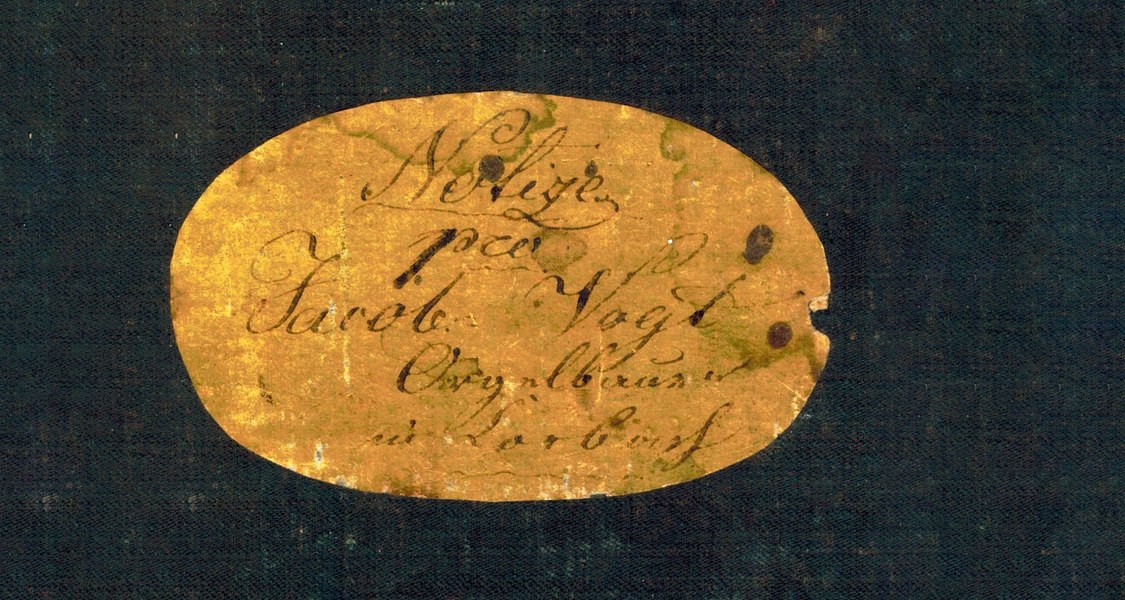 Notizen
pro
Jacob Vogt
Orgelbauer
in Corbach